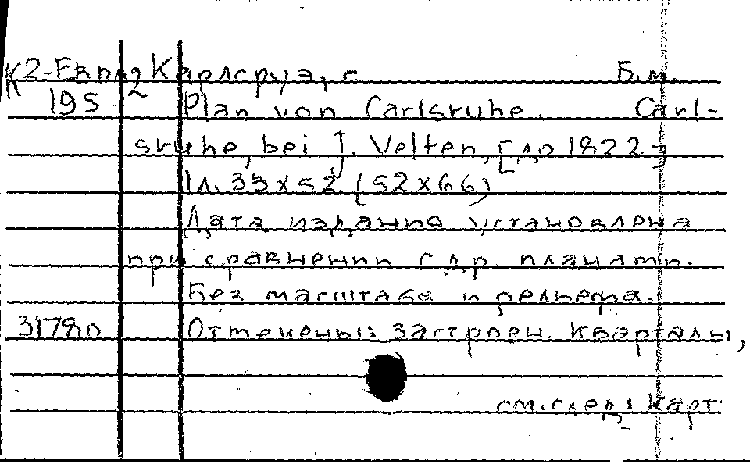 К2-Евр.2 Карлсруэ, г. Б.м.
195 Plan von Carlsruhe. Carl-
sruhe, bei J. Velten, [до 1822]
1 л. 33х52 (52х66)
Дата издания установлена
при сравнении с др. планами.
Без масштаба и рельефа.
31780 Отмечены: застроен. кварталы,
см. след. карт.